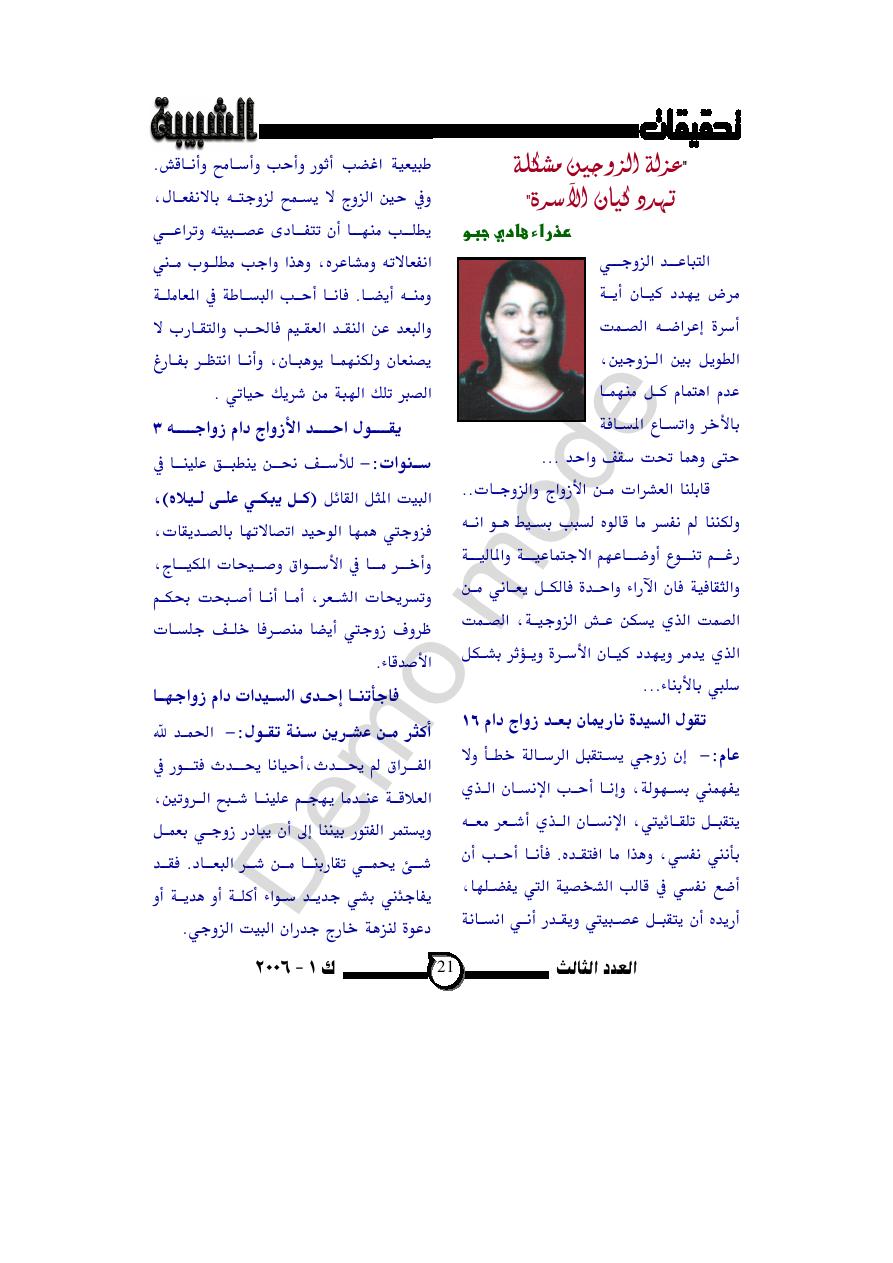 تحقيقات
الشبيبة
"عزلة الزوجين مشكلة
تهدد كيان الآسرة"
عذراء هادي جبو
التباعد الزوجي
مرض يهدد كيان أية
أسرة إعراضه الصمت
الطويل بين الزوجين،
عدم اهتمام كل منهما
بالأخر واتساع المسافة
حتى وهما تحت سقف واحد ...
قابلنا العشرات من الأزواج والزوجات..
ولكننا لم نفسر ما قالوه لسبب بسيط هو انه
رغم تنوع أوضاعهم الاجتماعية والمالية
والثقافية فان الآراء واحدة فالكل يعاني من
الصمت الذي يسكن عش الزوجية، الصمت
الذي يدمر ويهدد كيان الأسرة ويؤثر بشكل
سلبي بالأبناء...
تقول السيدة ناريمان بعد زواج دام ١٦
عام:- إن زوجي يستقبل الرسالة خطأ ولا
يفهمني بسهولة، وإنا أحب الإنسان الذي
يتقبل تلقائيتي، الإنسان الذي أشعر معه
بأنني نفسي، وهذا ما افتقده. فأنا أحب أن
أضع نفسي في قالب الشخصية التي يفضلها،
أريده أن يتقبل عصبيتي ويقدر أني انسانة
طبيعية اغضب أثور وأحب وأسامح وأناقش.
وفي حين الزوج لا يسمح لزوجته بالانفعال،
يطلب منها أن تتفادى عصبيته وتراعي
انفعالاته ومشاعره، وهذا واجب مطلوب مني
ومنه أيضا. فانا أحب البساطة في المعاملة
والبعد عن النقد العقيم فالحب والتقارب لا
يصنعان ولكنهما يوهبان، وأنا انتظر بفارغ
الصبر تلك الهبة من شريك حياتي .
يقول احد الأزواج دام زواجه ٣
سنوات:- للأسف نحن ينطبق علينا في
البيت المثل القائل (كل يبكي على ليلاه)،
فزوجتي همها الوحيد اتصالاتها بالصديقات،
وأخر ما في الأسواق وصيحات المكياج،
وتسريحات الشعر، أما أنا أصبحت بحكم
ظروف زوجتي أيضا منصرفا خلف جلسات
الأصدقاء.
فاجأتنا إحدى السيدات دام زواجها
أكثر من عشرين سنة تقول:- الحمد لله
الفراق لم يحدث،أحيانا يحدث فتور في
العلاقة عندما يهجم علينا شبح الروتين،
ويستمر الفتور بيننا إلى أن يبادر زوجي بعمل
شئ يحمي تقاربنا من شر البعاد. فقد
يفاجئني بشي جديد سواء أكلة أو هدية أو
دعوة لنزهة خارج جدران البيت الزوجي.
العدد الثالث
21
ك ١ - ٢٠٠٦
Demo mode